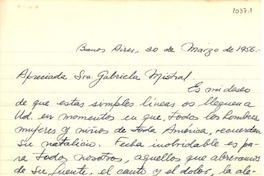 1037.1
Buenos Aires, 30 de Marzo de 1956.-
Apreciada Sra. Gabriela Mistral
Es mi deseo
de que estas simples líneas os lleguen a
Ud. en momentos en que, todos los hombres
mujeres y niños de toda América, recuerdan
su natalicio. Fecha inolvidable es pa-
ra todos nosotros, aquellos que abrevamos
de su fuente, el canto y el dolor, la ale-